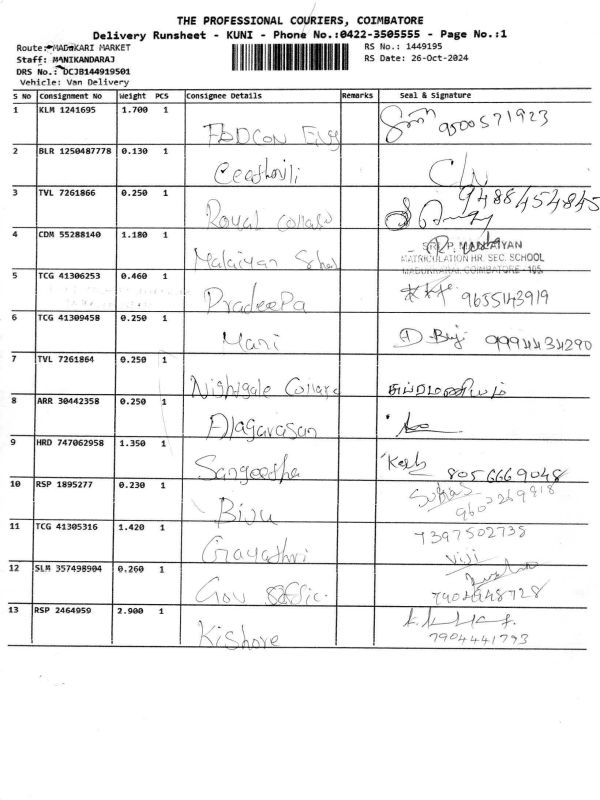 THE PROFESSIONAL COURIERS, COIMBATORE
Delivery Runsheet - KUNI - Phone No.:0422-3505555 - Page No.:1
Route: MADUKARI MARKET
RS No.: 1449195
Staff: MANIKANDARAJ
RS Date: 26-Oct-2024
DRS No.: DCJB144919501
Vehicle: Van Delivery
S No Consignment No Weight PCS Consignee Details Remarks Seal & Signature
1 KLM 1241695 1.700 1 9500571923
2 BLR 1250487778 0.130 1
3 TVL 7261866 0.250 1 Royal 9488454845
4 CDM 55288140 1.180 1 Malaiyan P. MALAIYAN
MATRICULATION HR. SEC. SCHOOL
MADUKKARAI, COIMBATORE - 105
5 TCG 41306253 0.460 1 Pradeepa 9655143919
6 TCG 41309458 0.250 1 Mani 9994434290
7 TVL 7261864 0.250 1 Nightgale சுப்ரமணியம்
8 ARR 30442358 0.250 1 Alagarasan
9 HRD 747062958 1.350 1 Sangeetha 8056669048
10 RSP 1895277 0.230 1 Biju
11 TCG 41305316 1.420 1 Gayathri 7397502735
Viji
12 SLM 357498904 0.260 1 Gov 7904948728
13 RSP 2464959 2.900 1 Kishore 7904441793